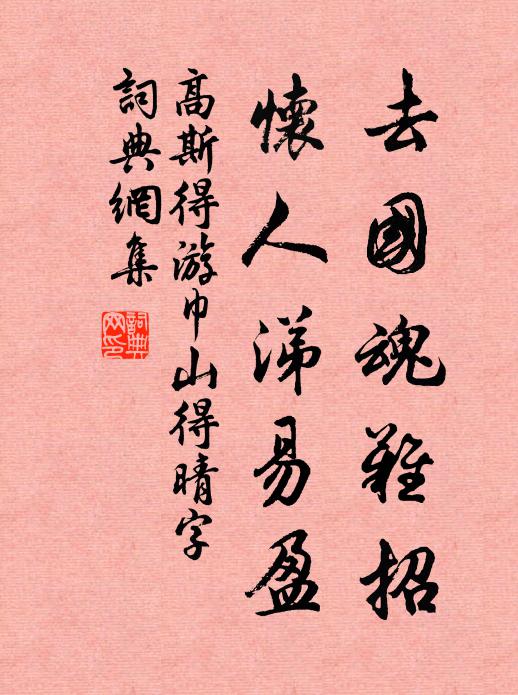 去國魂難招
懷人涕易盈
高斯得游巾山得晴字
詞典網集
詞典网印